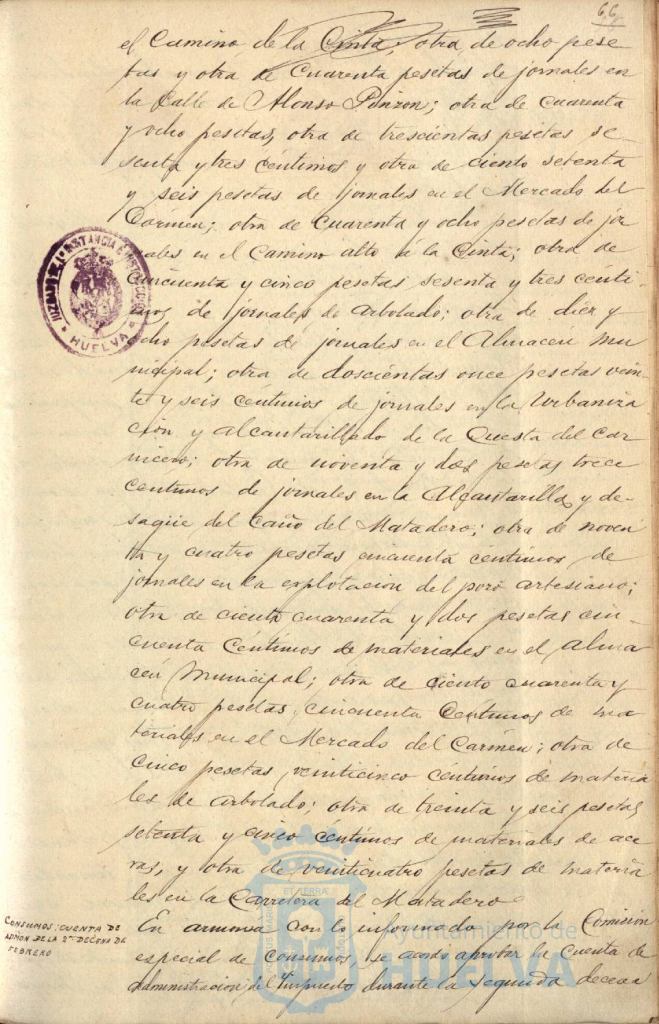 66
el Camino de la Cinta; otra de ocho pese
tas y otra de Cuarenta pesetas de jornales en
la Calle de Alonso Pinzon; otra de cuarenta
y ocho pesetas, otra de trescientas pesetas se
senta y tres céntimos y otra de ciento setenta
y seis pesetas de jornales en el Mercado del
Cármen; otra de cuarenta y ocho pesetas de jor
nales en el Camino alto á la Cinta; otra de
Cincuenta y cinco pesetas sesenta y tres centi
mos de jornales de arbolado; otra de diez y
ocho pesetas de jornales en el Almacen mu
nicipal; otra de doscientas once pesetas vein
te y seis céntimos de jornales en la Urbaniza
ción y alcantarillado de la Cuesta del Car
nicero; otra de noventa y dos pesetas trece
centimos de jornales en la Alcantarilla y de-
sagüe del Caño del Matadero; otra de noven
ta y cuatro pesetas cincuenta centimos de
jornales en la explotacion del pozo artesiano;
otra de ciento cuarenta y dos pesetas cin-
cuenta céntimos de materiales en el alma
cén Municipal; otra de ciento cuarenta y
cuatro pesetas, cincuenta centimos de ma
teriales en el Mercado del Cármen; otra de
cinco pesetas veinticinco céntimos de materia
les de arbolado; otra de treinta y seis pesetas
setenta y cinco céntimos de materiales de ace
ras, y otra de veinticuatro pesetas de materia
les en la Carretera del Matadero
En armonia con lo informado por la Comision
especial de consumos, se acordó aprobar la Cuenta de
administracion del Impuesto durante la segunda decena
CONSUMOS: CUENTA DE
ADMON DE LA 2ª DECENA DE
FEBRERO
JUZGADO DE 1ª INSTANCIA É INSTRUCCION
* HUELVA *
Ayuntamiento de
HUELVA